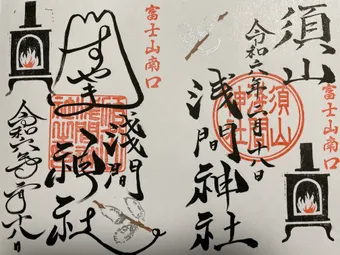 須山
浅間神社
令和六年二月十八日
富士山南口
須山
浅間
神社
富士山南口
すやま
浅間
神社
令和六年二月十八日